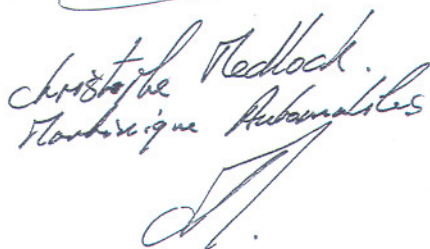 Christophe Medlock.
Martinique Automobiles